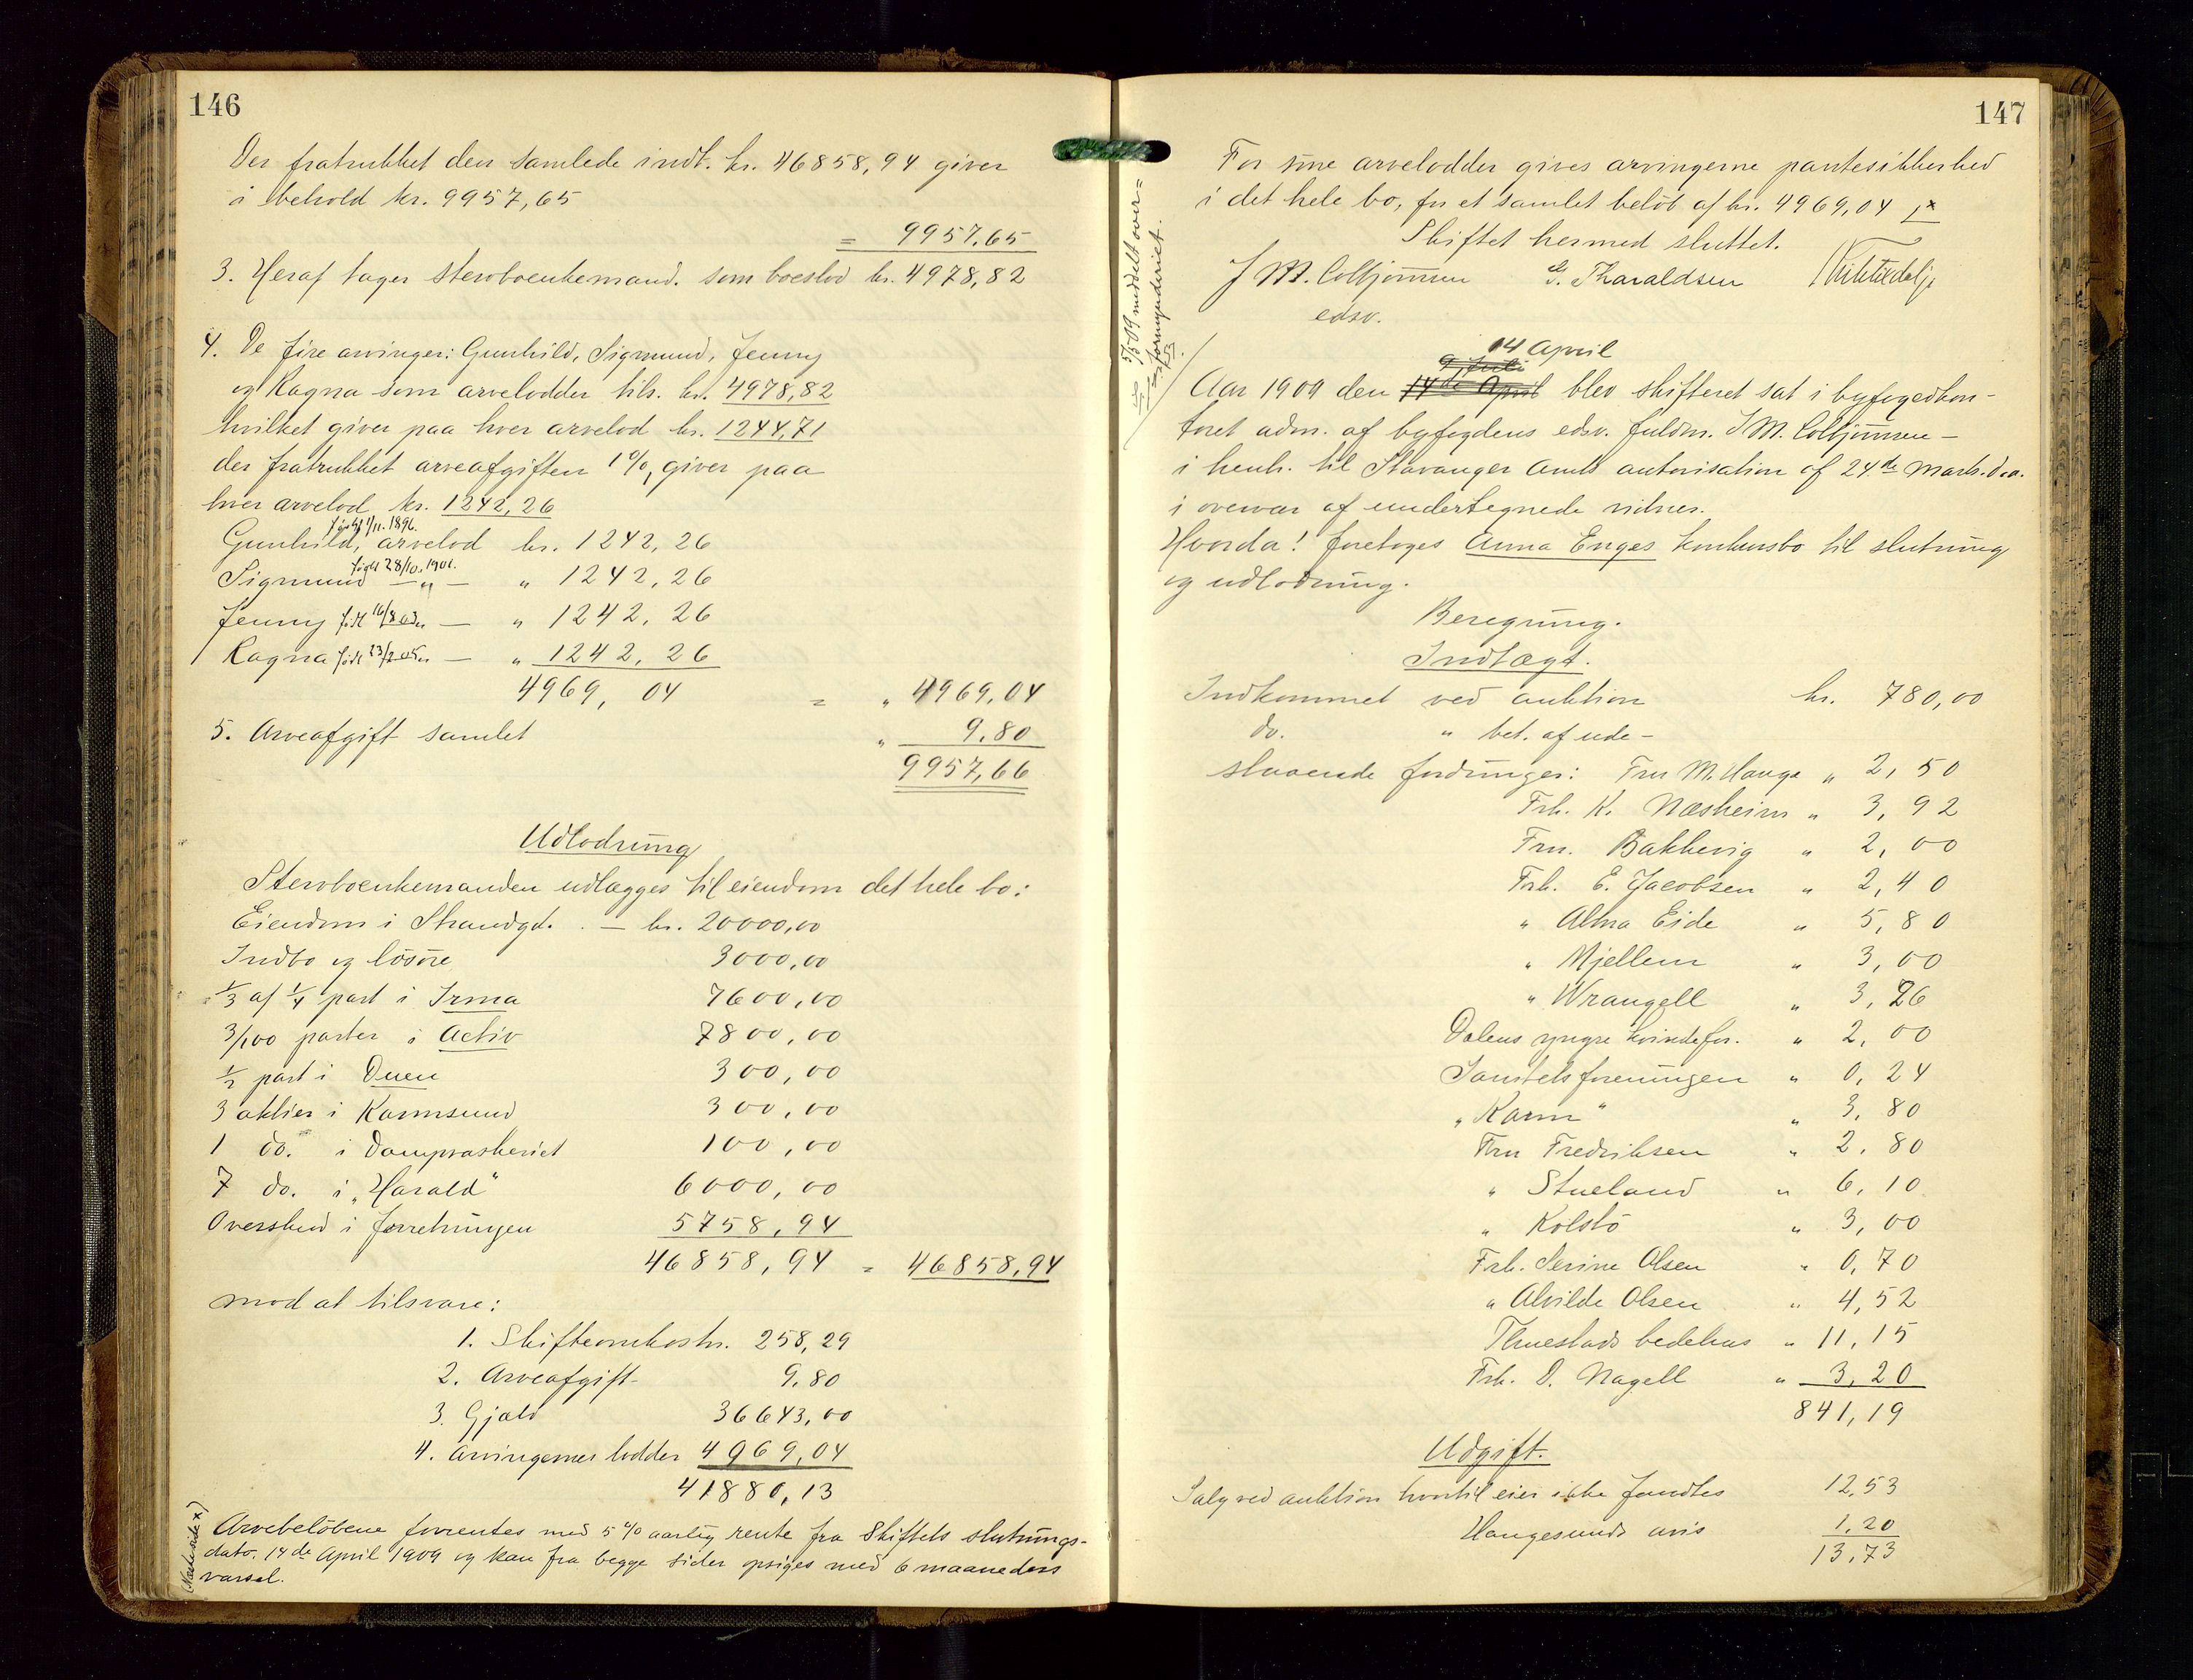 146
Der fratrukket den samlede indt. kr. 46858,94 giver
i behold kr. 9957,65
= 9957,65
3. Heraf tager stervboenkemand. som boeslod kr. 4978,82
4. De fire arvinger: Gunhild, Sigmund, Jenny
og Ragna som arvelodder tils. kr. 4978,82
hvilket giver paa hver arvelod kr. 1244,71
der fratrukket arveafgiften 1%, giver paa
hver arvelod kr. 1242,26
Gunhild, født 1/11. 1896. arvelod kr. 1242,26
Sigmund født 28/10. 1901. — „ — „ 1242,26
Jenny født 16/8 03 „ — „ 1242,26
Ragna født 23/2 05 „ — „ 1242,26
4969,04 = „ 4969,04
5. Arveafgift samlet „ 9.80
9957,66
Udlodning
Stervboenkemanden udlægges til eiendom det hele bo:
Eiendom i Strandgd. . — kr. 20000,00
Indbo og løsøre 3000,00
1/3 af 1/4 part i Irma 7600,00
3/100 parter i Activ 7800,00
1/2 part i Duen 300,00
3 aktier i Karmsund 300,00
1 do. i Dampvaskeriet 100,00
7 do. i „Harald" 6000,00
Overskud i forretningen 5758,94
46858,94 = 46858,94
mod at tilsvare:
1. Skifteomkostn. 258,29
2. Arveafgift 9.80
3. Gjæld 36643,00
4. Arvingernes lodder 4969,04
41880,13
(Næste side x)
Arvebeløbene forrentes med 5% aarlig rente fra Skiftets slutnings-
dato. 14de April 1909 og kan fra begge sider opsiges med 6 maaneders
varsel.
147
For sine arvelodder gives arvingerne pantesikkerhed
i det hele bo, for et samlet beløb af kr. 4969,04 x
Skiftet hermed sluttet.
J M. Colbjørnsen G. Tharaldsen
edsv.
5/5 09 meddelt over=
formynderiet.
14 April
9 Juli
Aar 1909 den 14de April blev skifteret sat i byfogedkon-
toret adm. af byfogdens edsv. fuldm. J M. Colbjørnsen —
i henh. til Stavanger Amts autorisation af 24de Marts. d.a.
i overvær af undertegnede vidner.
Hvorda! foretoges Anna Enges konkursbo til slutning
og udlodning.
Beregning.
Indtægt.
Indkommet ved auktion kr. 780,00
do. „ bet. af ude-
staaende fordringer: Fru M. Hauge „ 2,50
Frk. K. Næsheim „ 3,92
Fru. Bakkevig „ 2,00
Frk. E. Jacobsen „ 2,40
„ Alma Eide „ 5,80
„ Mjellem „ 3,00
„ Wrangell „ 3,26
Dalens yngre kvindefor. „ 2,00
Samtelsforeningen „ 0,24
„Karm" „ 3,80
Fru Fredriksen „ 2,80
„ Stueland „ 6,10
„ Kolstø „ 3,00
Frk. Serine Olsen „ 0,70
„ Alvilde Olsen „ 4,52
Thuestads bedehus „ 11,15
Frk. D. Nagell „ 3,20
841,19
Udgift.
Salg ved auktion hvortil eier ikke fandtes 12,53
Haugesunds avis 1,20
13,73